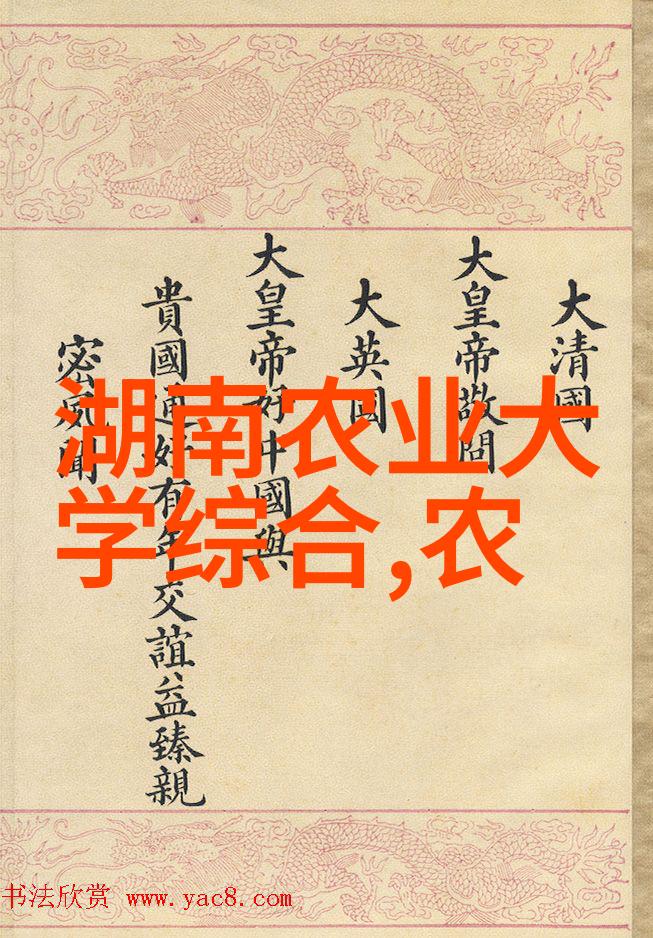 大清國
大皇帝敬問
大英國
大皇帝好中國與
貴國通好有年交誼益臻親
密夙聞
湖南农业大
学综合,农
书法欣赏 www.yac8.com